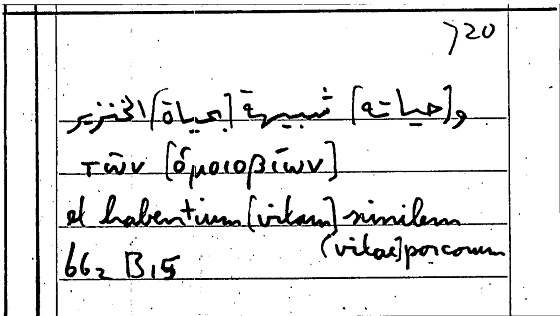 720
و[حياته] شبيهة [بحياة] الخنزير
τῶν [ὁμοιοβίων]
et habentium [vitam] similem
(vitae] porcorum
66₂ B,15